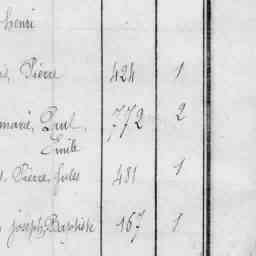 henri
Pierre 424 1
Paul, 772 2
Emile
Pierre, Jules 481 1
Joseph, Baptiste 167 1